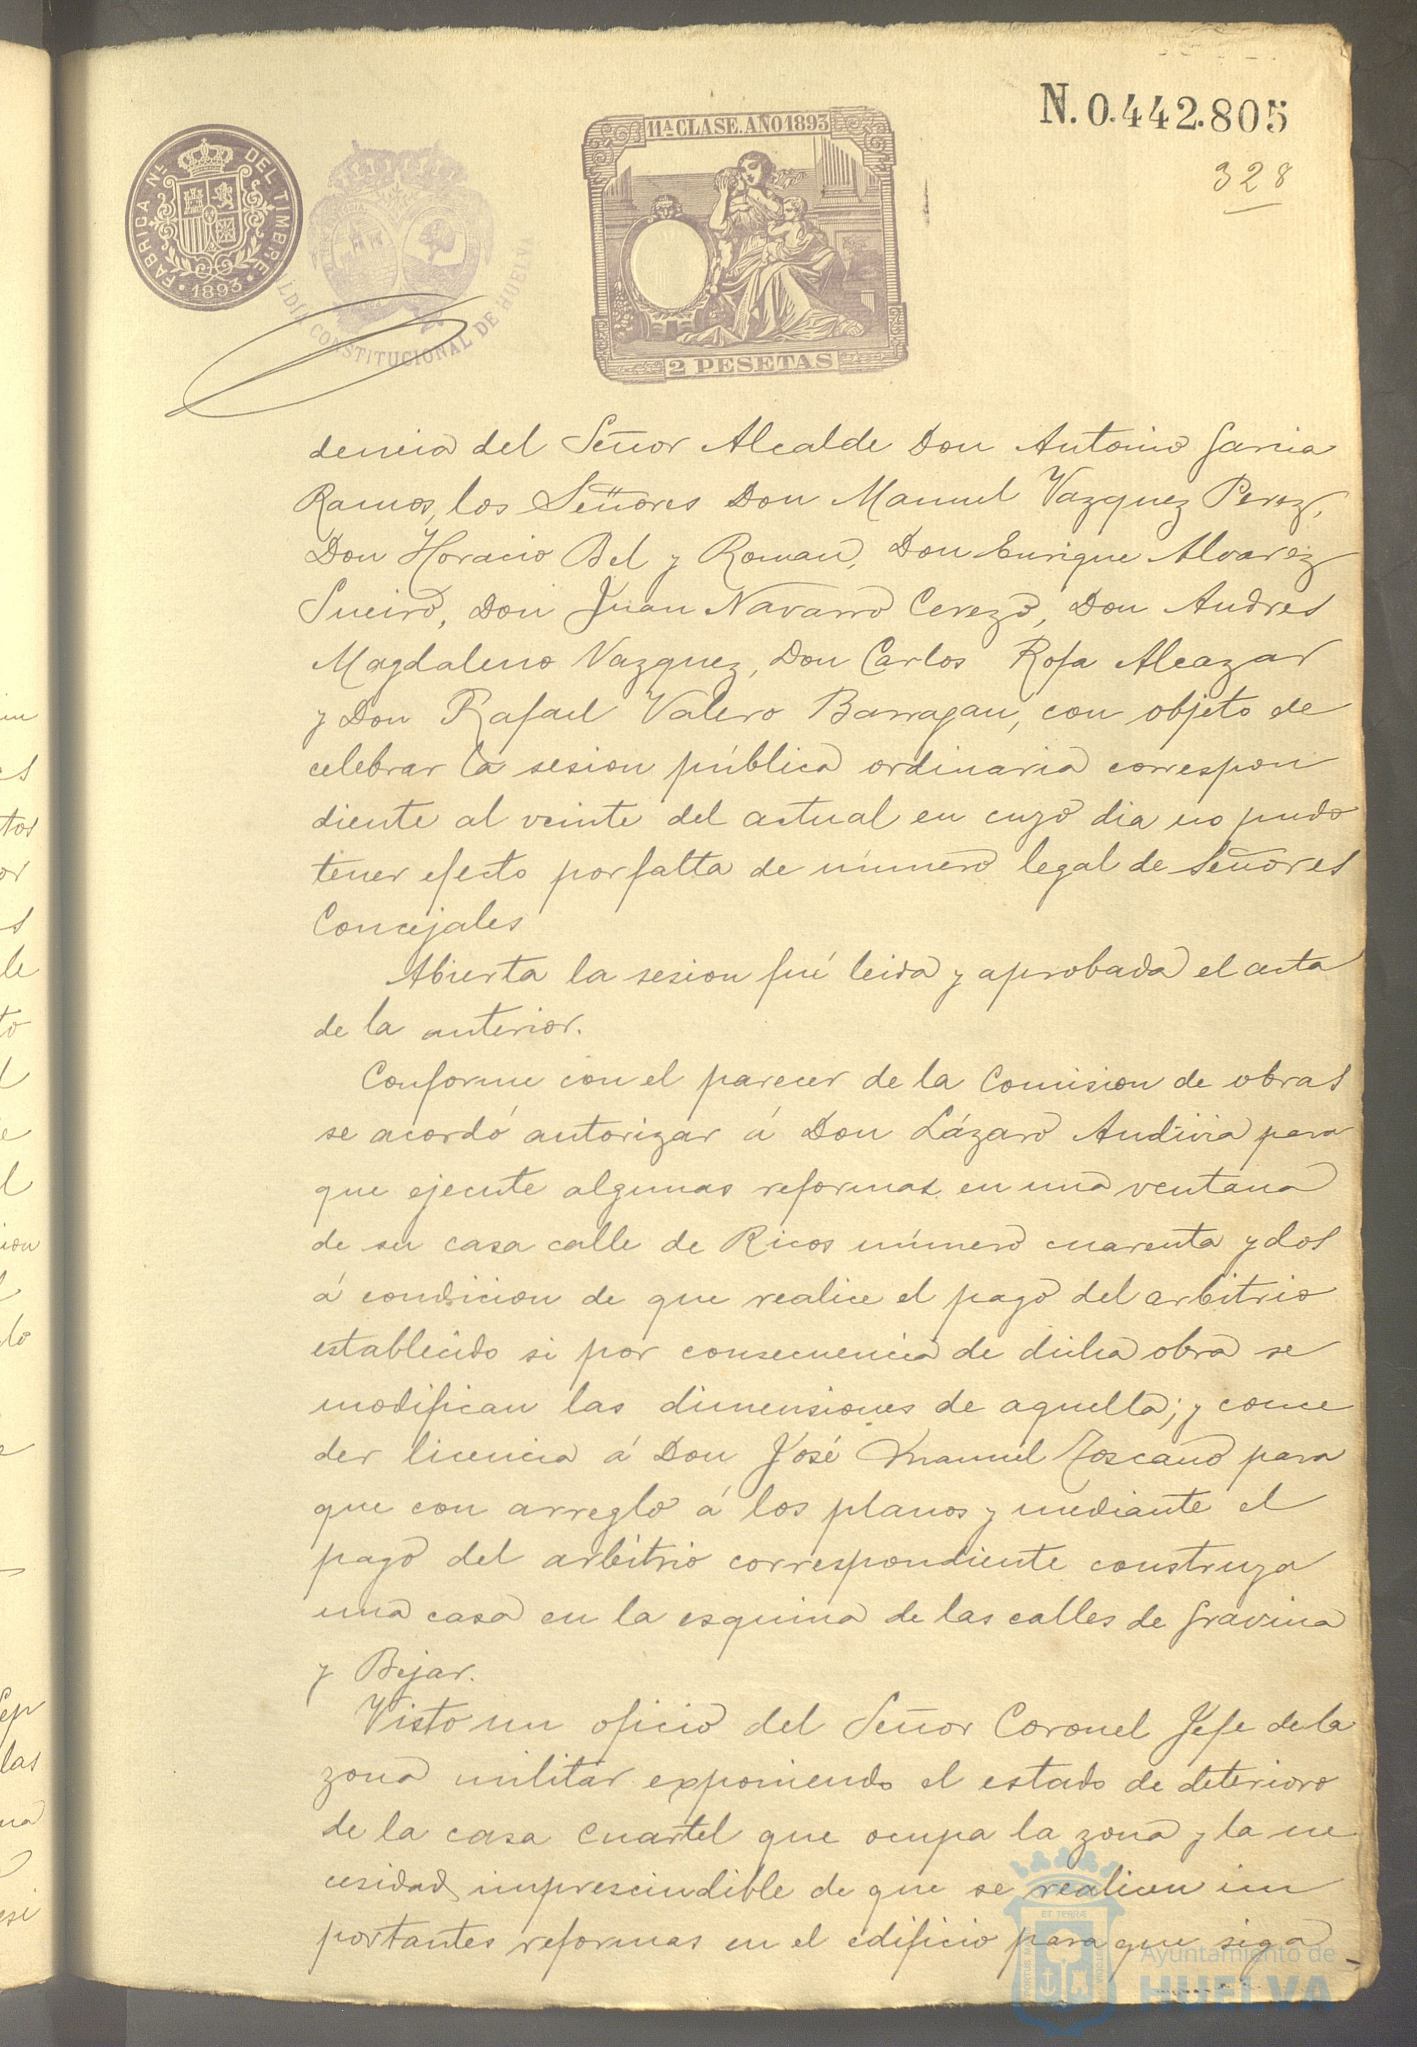 N. 0.442.805
328
11ª CLASE. AÑO 1893
FABRICA Nˡ. DEL TIMBRE
1893
LDIA CONSTITUCIONAL DE HUELVA
2 PESETAS
dencia del Señor Alcalde Don Antonio Garcia
Ramos, los Señores Don Manuel Vazquez Perez,
Don Horacio Bel y Roman, Don Enrique Alvarez
Sueiro, Don Juan Navarro Cerezo, Don Andres
Magdaleno Vazquez, Don Carlos Rofa Alcazar
y Don Rafael Valero Barragan, con objeto de
celebrar la sesion pública ordinaria correspon
diente al veinte del actual en cuyo dia no pudo
tener efecto por falta de número legal de Señores
Concejales
Abierta la sesion fué leida y aprobada el acta
de la anterior.
Conforme con el parecer de la Comision de obras
se acordó autorizar á Don Lázaro Andivia para
que ejecute algunas reformas en una ventana
de su casa calle de Ricos número cuarenta y dos
á condicion de que realice el pago del arbitrio
establecido si por consecuencia de dicha obra se
modifican las dimensiones de aquella; y conce
der licencia á Don José Manuel Toscano para
que con arreglo á los planos y mediante el
pago del arbitrio correspondiente construya
una casa en la esquina de las calles de Gravina
y Bejar.
Visto un oficio del Señor Coronel Jefe de la
zona militar exponiendo el estado de deterioro
de la casa cuartel que ocupa la zona y la ne
cesidad imprescindible de que se realicen im
portantes reformas en el edificio para que siga
Ayuntamiento de
HUELVA